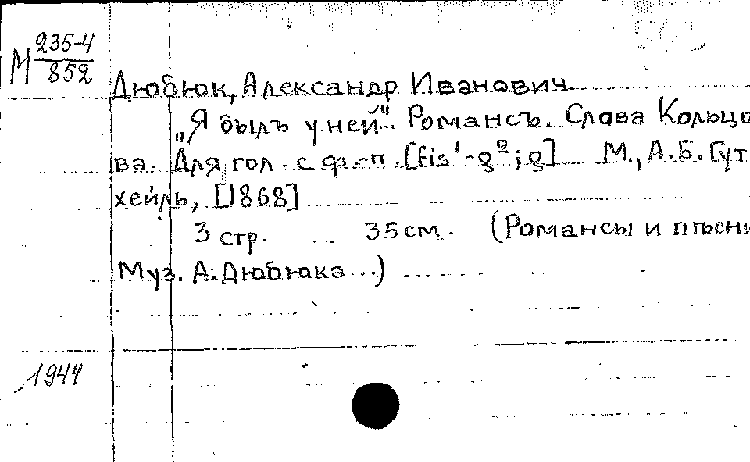 М 235-4
852
Дюбюк, Александр Иванович
„Я былъ у ней". Романсъ. Слова Кольцо
ва. Для гол. с ф.-п. [fis¹-g²; g] М., А.Б. Гут
хейль, [1868]
3 стр. 35 см. (Романсы и пѣсни
Муз. А. Дюбюка...)
1944